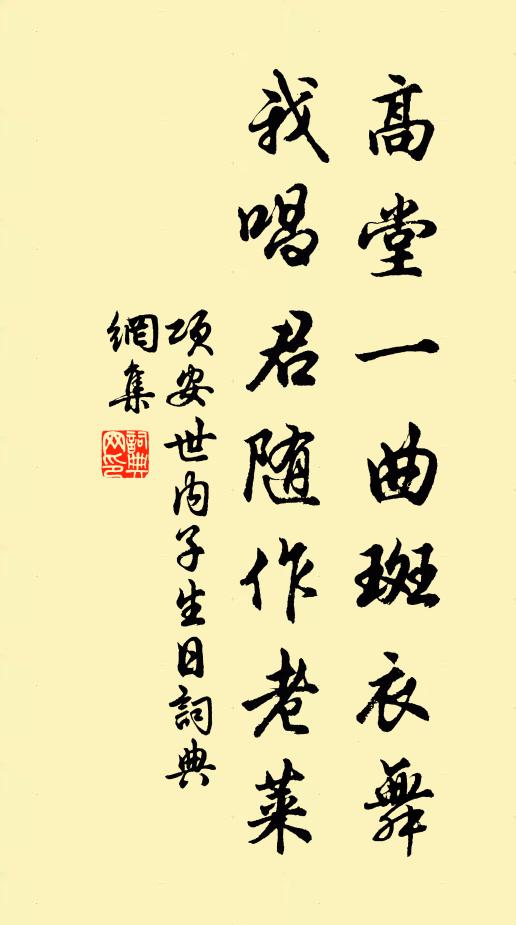 高堂一曲斑衣舞
我唱君随作老莱
项安世内子生日詞典
網集
詞典
网印